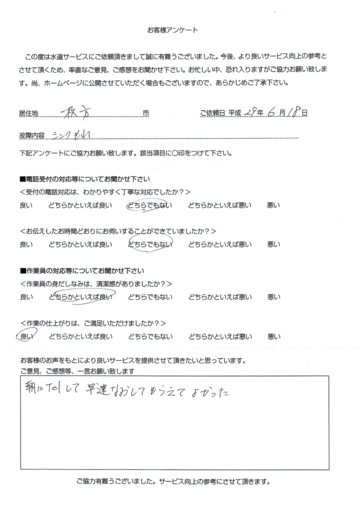 お客様アンケート
この度は水道サービスにご依頼頂きまして誠に有難うございました。今後、より良いサービス向上の参考と
させて頂くため、率直なご意見、ご感想をお聞かせ下さい。お忙しい中、恐れ入りますがご協力お願い致しま
す。尚、ホームページに公開させていただく場合もございますので、あらかじめご了承下さい。
居住地 枚方 市 ご依頼日 平成 29年 6月 18日
故障内容 シンク
下記アンケートにご協力お願い致します。該当項目に〇印をつけて下さい。
■電話受付の対応等についてお聞かせ下さい
＜受付の電話対応は、わかりやすく丁寧な対応でしたか？＞
良い どちらかといえば良い どちらでもない どちらかといえば悪い 悪い
＜お伝えしたお時間どおりにお伺いすることができていましたか？＞
良い どちらかといえば良い どちらでもない どちらかといえば悪い 悪い
■作業員の対応等についてお聞かせ下さい
＜作業員の身だしなみは、清潔感がありましたか？＞
良い どちらかといえば良い どちらでもない どちらかといえば悪い 悪い
＜作業の仕上がりは、ご満足いただけましたか？＞
良い どちらかといえば良い どちらでもない どちらかといえば悪い 悪い
お客様のお声をもとにより良いサービスを提供させて頂きたいと思っています。
ご意見、ご感想等、一言お願い致します
朝にTelして 早速なおしてもらえて よかった
ご協力有難うございました。サービス向上の参考にさせて頂きます。